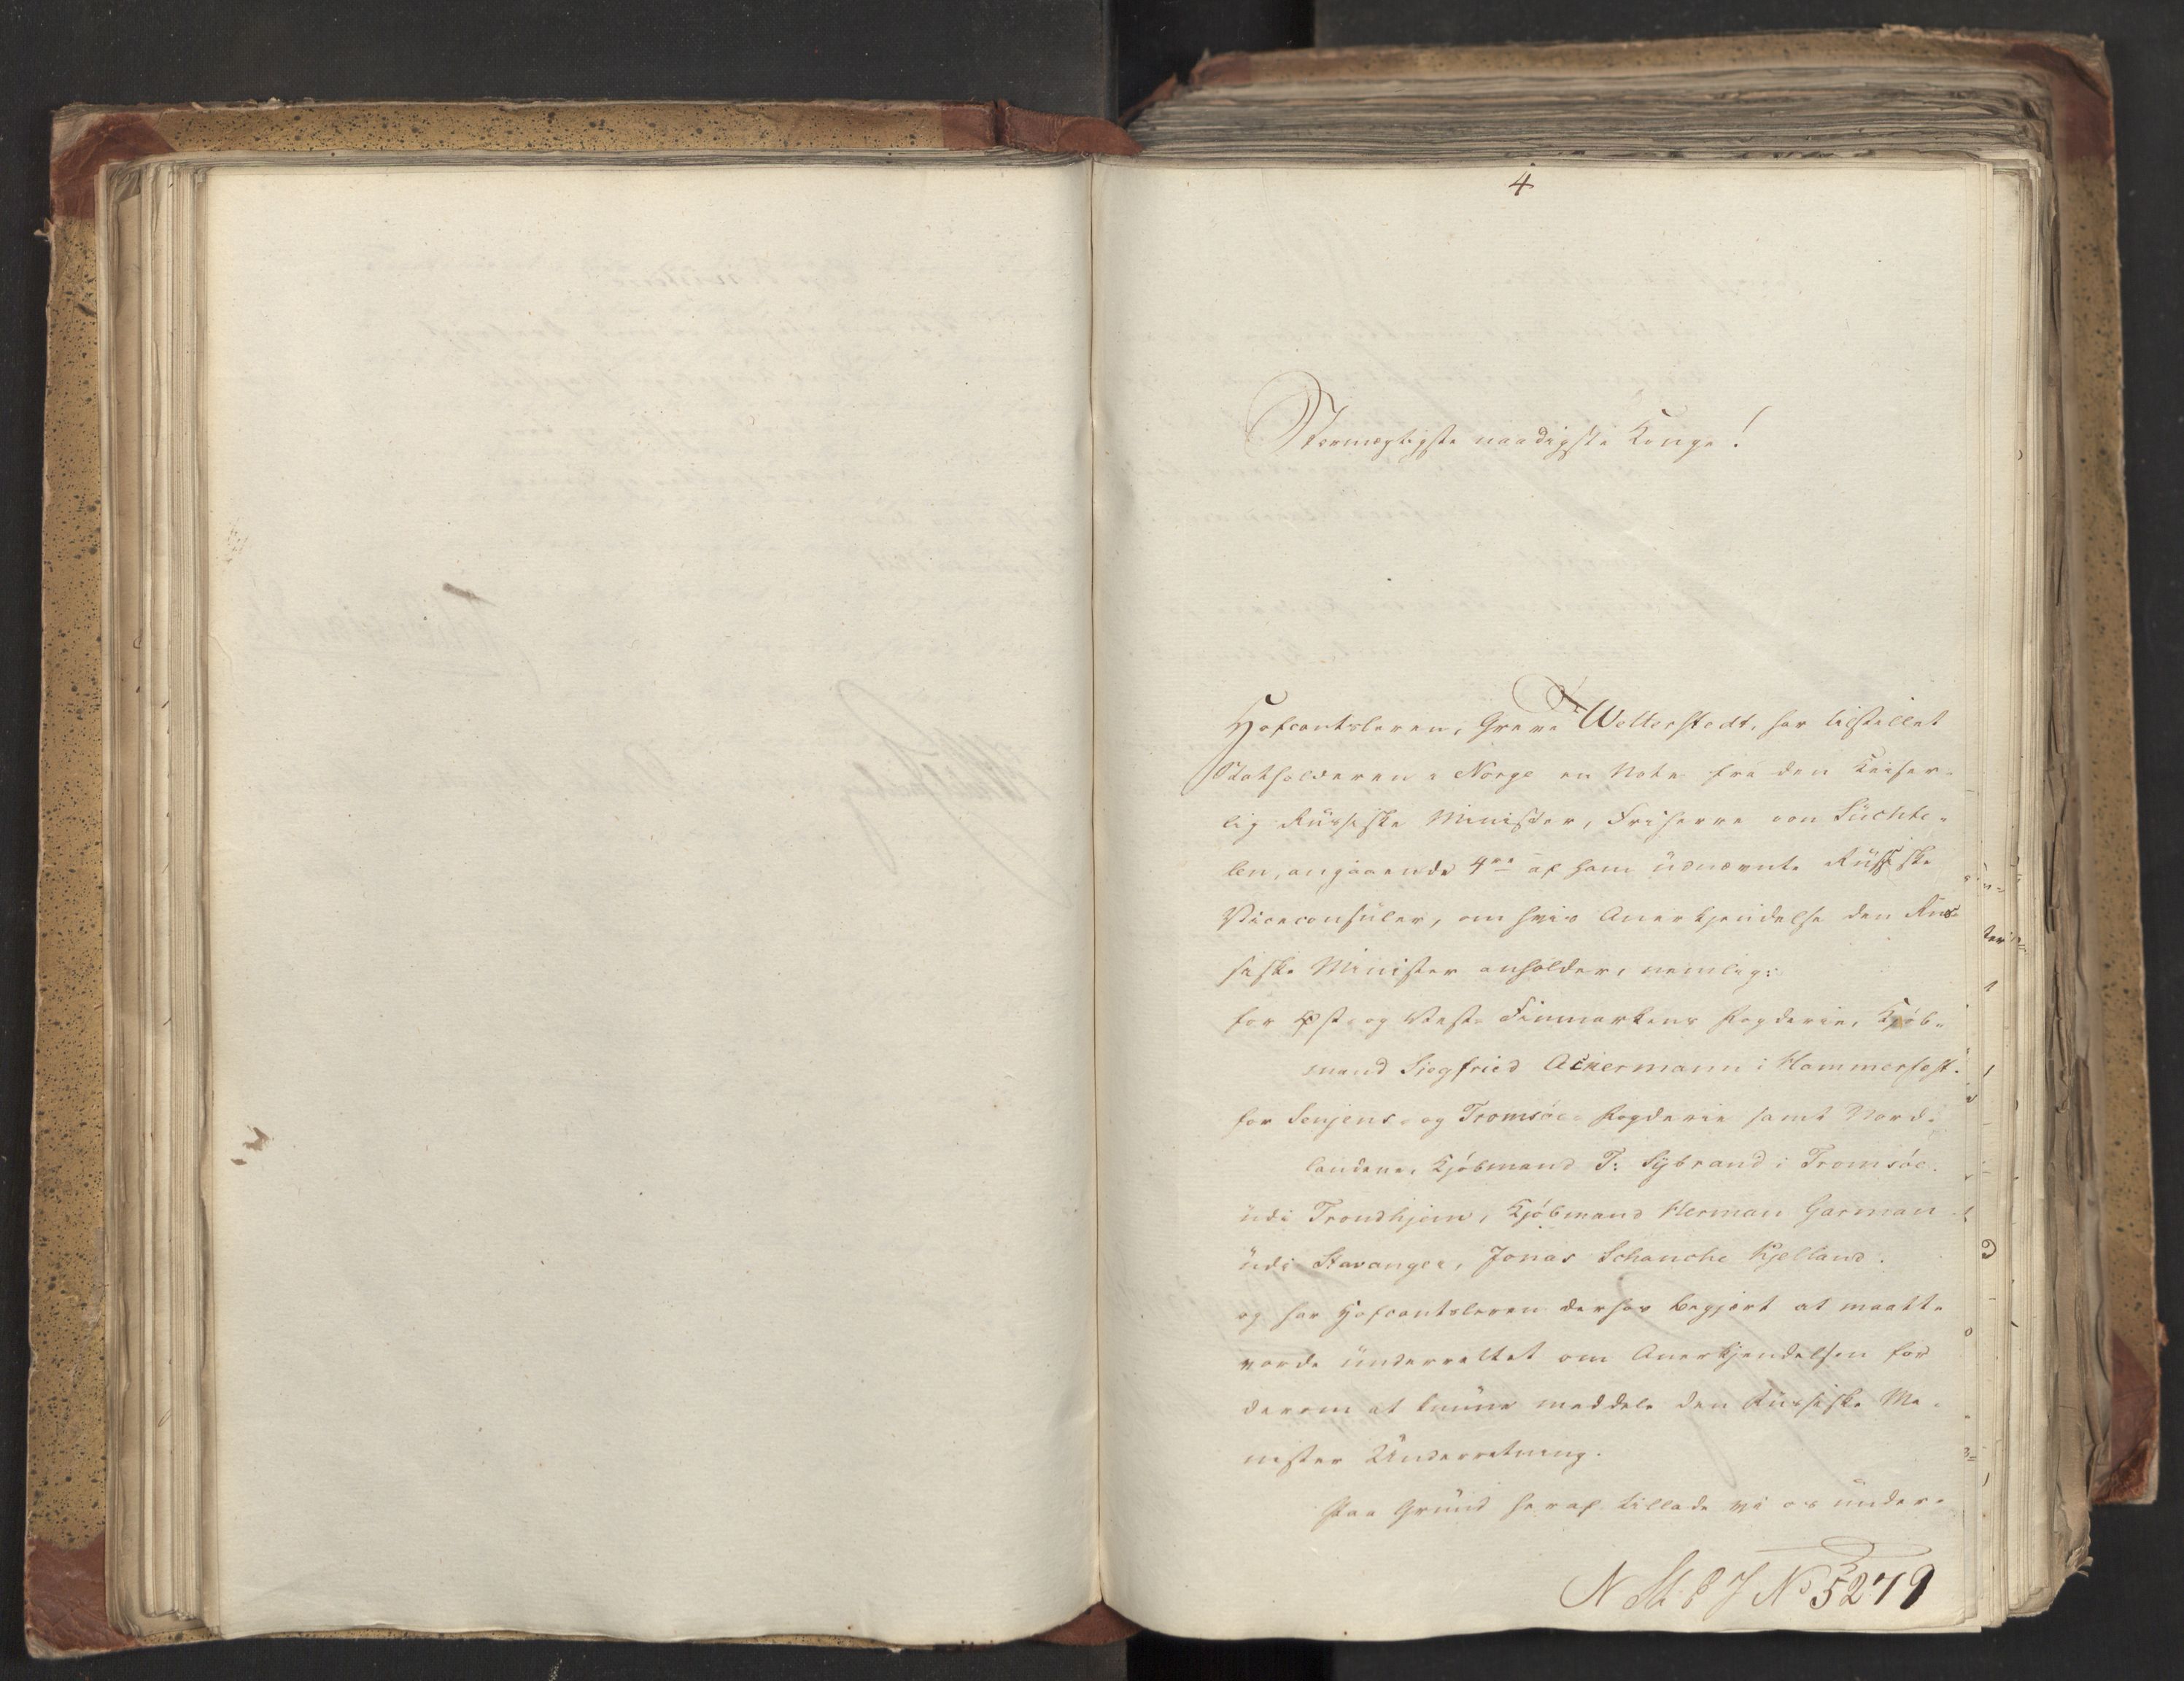 4
Stormægtigste naadigste Konge!
Hofcantsleren, Greve Wetterstedt, har tilstillet
Statholderen i Norge en Note fra den Keiser-
lig Russiske Minister, Friherre von Süchte-
len, angaaende 4re af ham udnævnte Russiske
Viceconsuler, om hvis Anerkjendelse den Rus-
siske Minister anholder, nemlig:
for Øst- og Vest- Finmarkens Fogderie, Kjøb-
mand Siegfried Ackermann i Hammerfest.
for Senjens- og Tromsøe- Fogderie samt Nord-
landene, Kjøbmand F: Sybrand i Tromsøe.
udi Trondhjem, Kjøbmand Herman Garman
udi Stavanger, Jonas Schanche Kjelland.
og har Hofcantsleren derhos begjert at maatte
vorde underrettet om Anerkjendelsen for
derom at kunne meddele den Russiske Mi-
nister Underretning.
Paa Grund heraf tillade vi os under-
No 5279